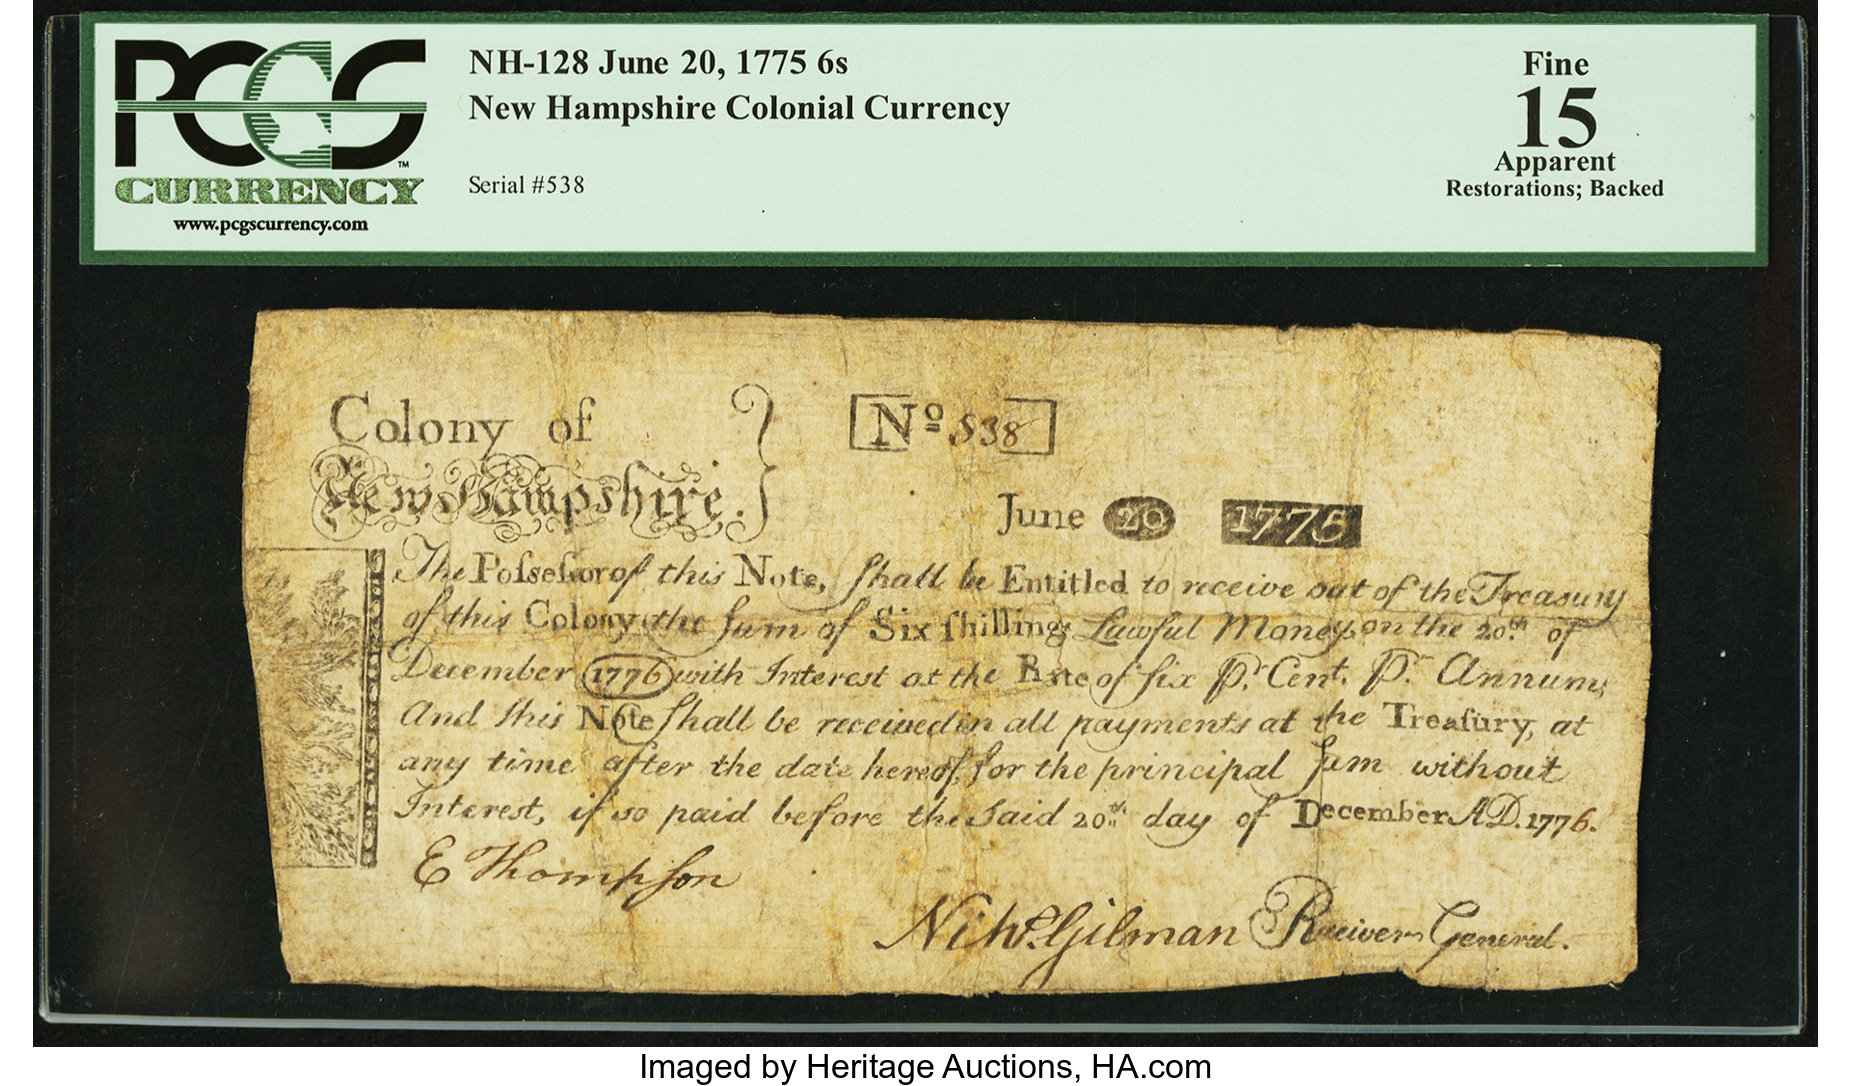 PCGS
™
CURRENCY
www.pcgscurrency.com
NH-128 June 20, 1775 6s
New Hampshire Colonial Currency
Serial #538
Fine
15
Apparent
Restorations; Backed
Colony of
New Hampshire.
Nº 538
June 20 1775
The Poſseſsor of this Note, ſhall be Entitled to receive out of the Treasury
of this Colony the ſum of Six ſhillings Lawful Money, on the 20.th of
December 1776 with Interest at the Rate of ſix P.r Cent. P.r Annum;
And this Note ſhall be received in all payments at the Treaſury, at
any time after the date hereof, for the principal ſum without
Interest, if so paid before the Said 20.th day of December AD. 1776.
E Thompſon
Nichs. Gilman Receiver General.
Imaged by Heritage Auctions, HA.com